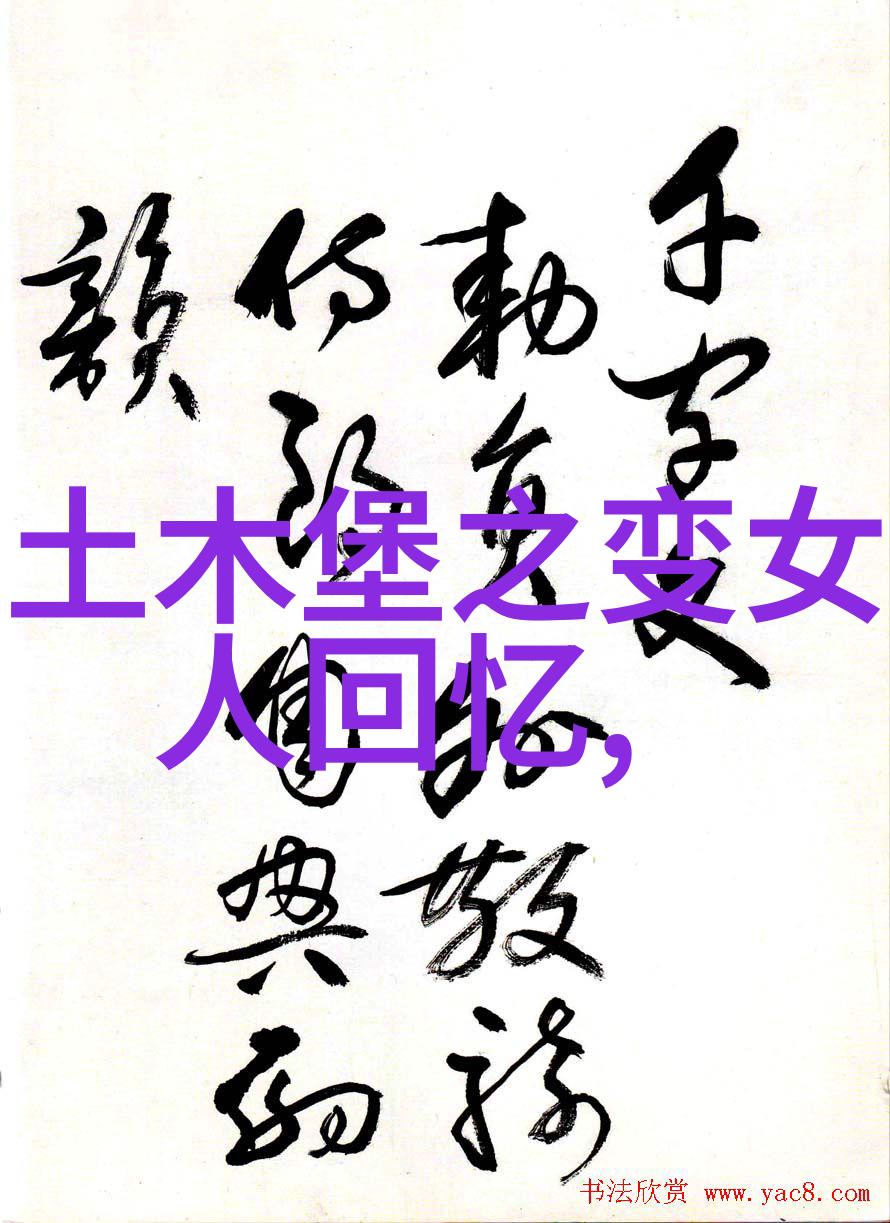 千字文
勅員外散騎
侍郎周興嗣
韻
土木堡之变女
人回忆,
书法欣赏 www.yac8.com